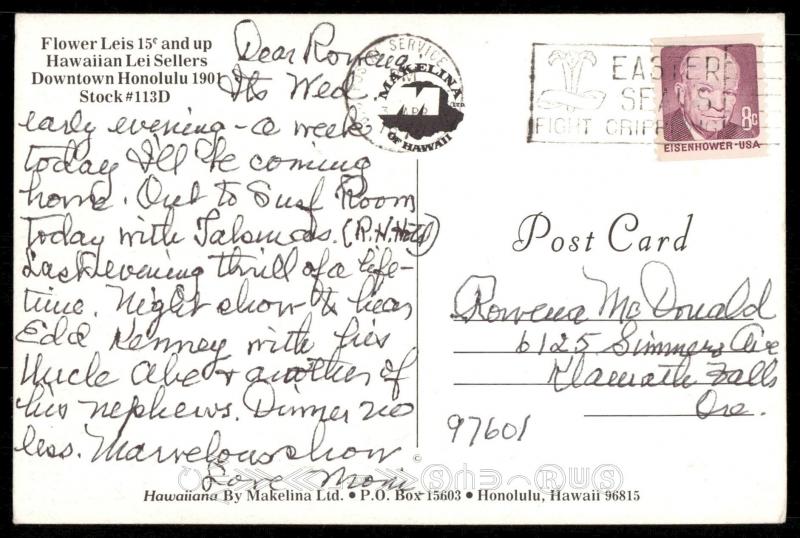 Flower Leis 15¢ and up
Hawaiian Lei Sellers
Downtown Honolulu 1901
Stock #113D
Dear Rowena
Its Wed
early evening - a week
today I'll be coming
home. Out to Surf Room
today with (R.H. Hotel)
Last evening thrill of a life-
time. Night show to hear
Edd Kenney with his
Uncle Abe & another of
his nephews. Dinner no
less. Marvelous show
Love Mom
SERVICE
MAKELINA
LTD.
APR
OF HAWAII
EASTER
SEALS
FIGHT CRIPPLING
8c
EISENHOWER·USA
Post Card
Rowena McDonald
6125 Simmers Ave
Klamath Falls
Ore.
97601
©
Hawaiiana By Makelina Ltd. • P.O. Box 15603 • Honolulu, Hawaii 96815